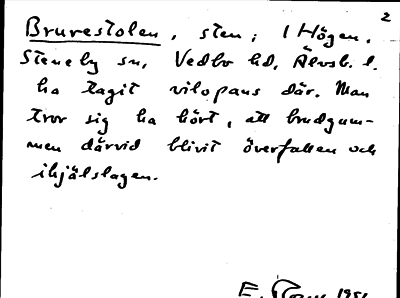 2
Bruvestolen, sten; i Högen.
Steneby sn, Vedbo hd, Älvsb. l.
ha tagit vilopaus där. Man
tror sig ha hört, att brudgum-
men därvid blivit överfallen och
ihjälslagen.
E. 1951